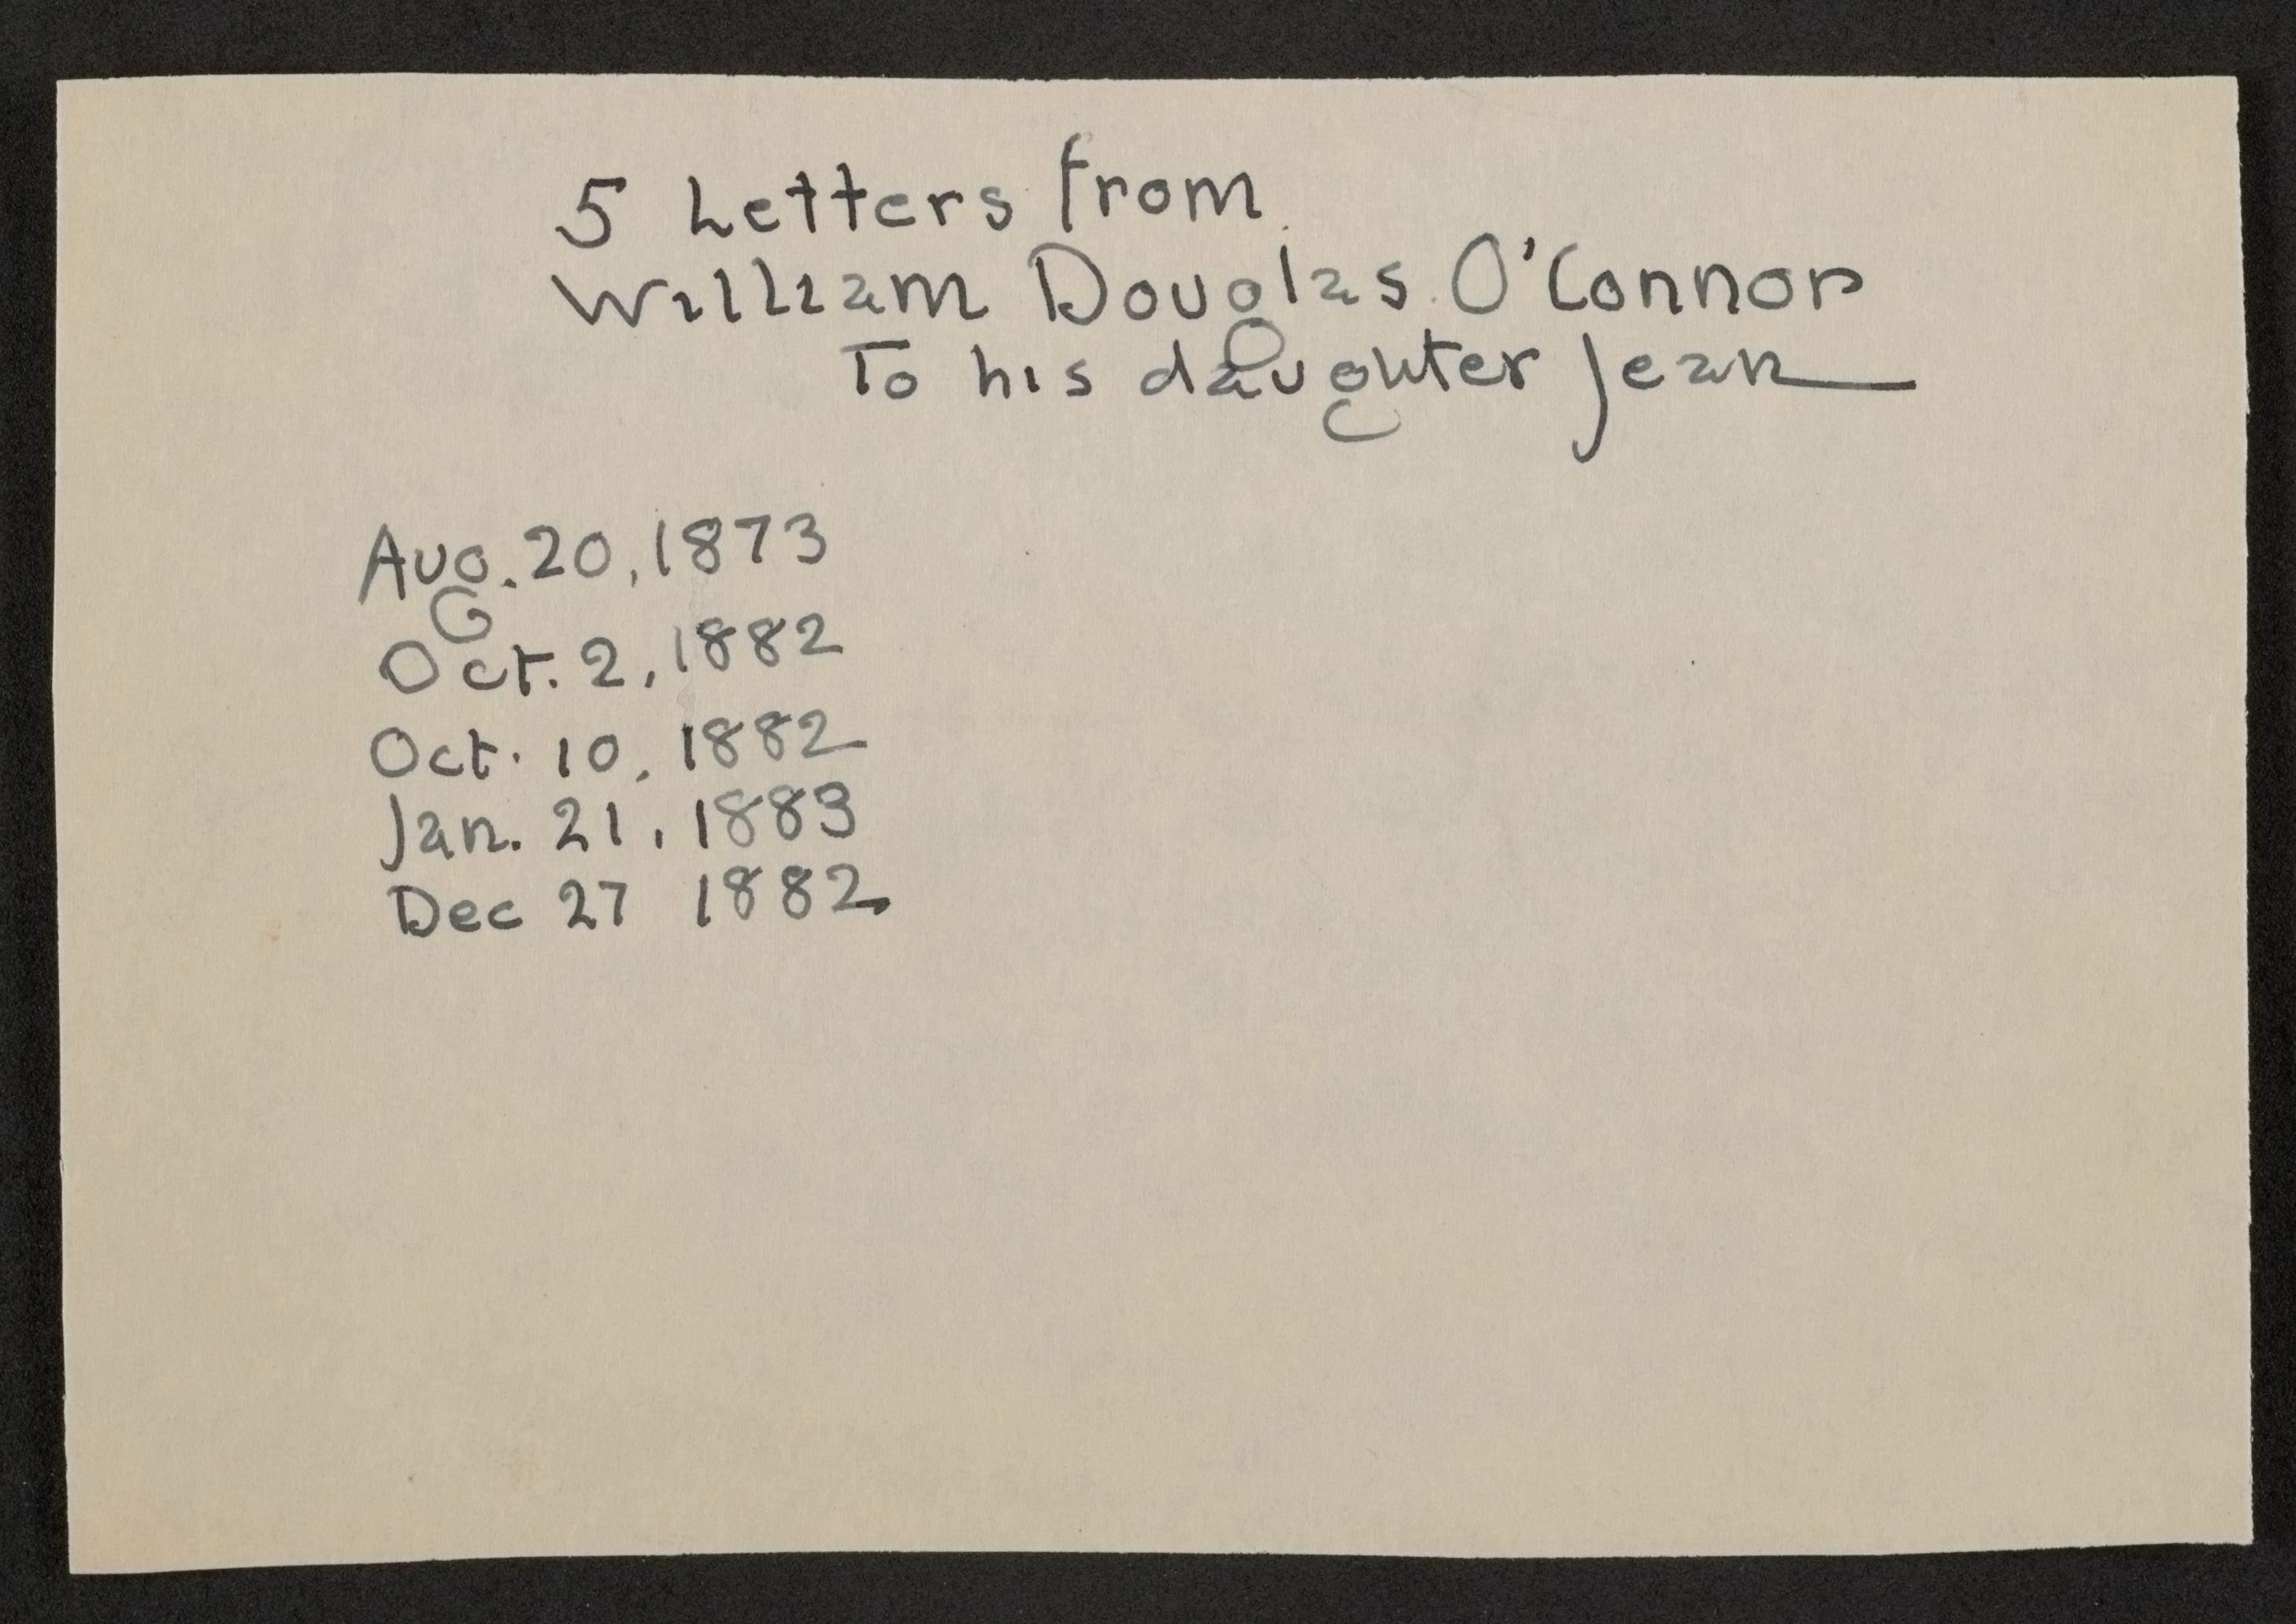 5 Letters from
William Douglas O'Connor
To his daughter Jean
Aug. 20, 1873
Oct. 2, 1882
Oct. 10, 1882
Jan. 21, 1883
Dec 27 1882